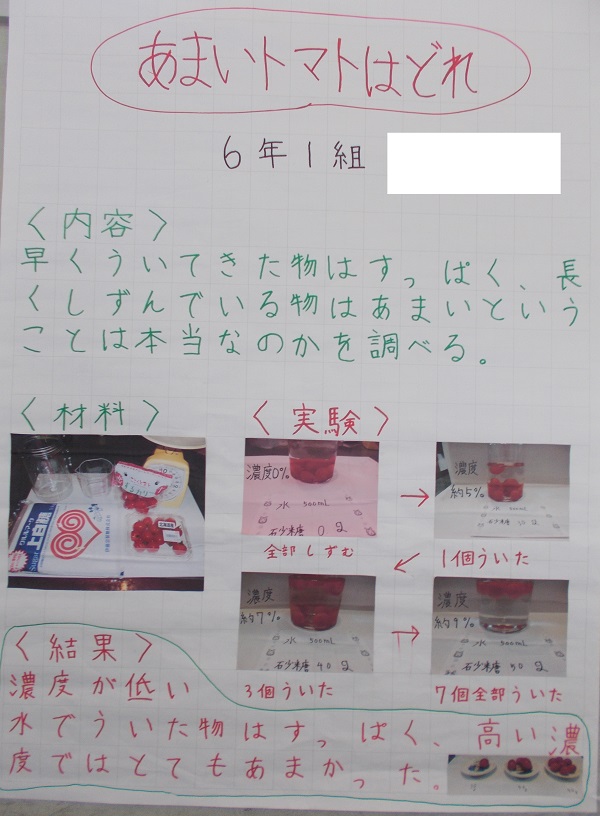 あまいトマトはどれ
6年1組
〈内容〉
早くういてきた物はすっぱく、長
くしずんでいる物はあまいという
ことは本当なのかを調べる。
〈材料〉
〈実験〉
濃度0%
水 500mL
砂糖 0g
全部しずむ
濃度
約5%
水 500mL
1個ういた
濃度
約7%
水 500mL
砂糖 40g
3個ういた
濃度
約9%
水 500mL
砂糖 50g
7個全部ういた
〈結果〉
濃度が低い
水でういた物はすっぱく、高い濃
度ではとてもあまかった。